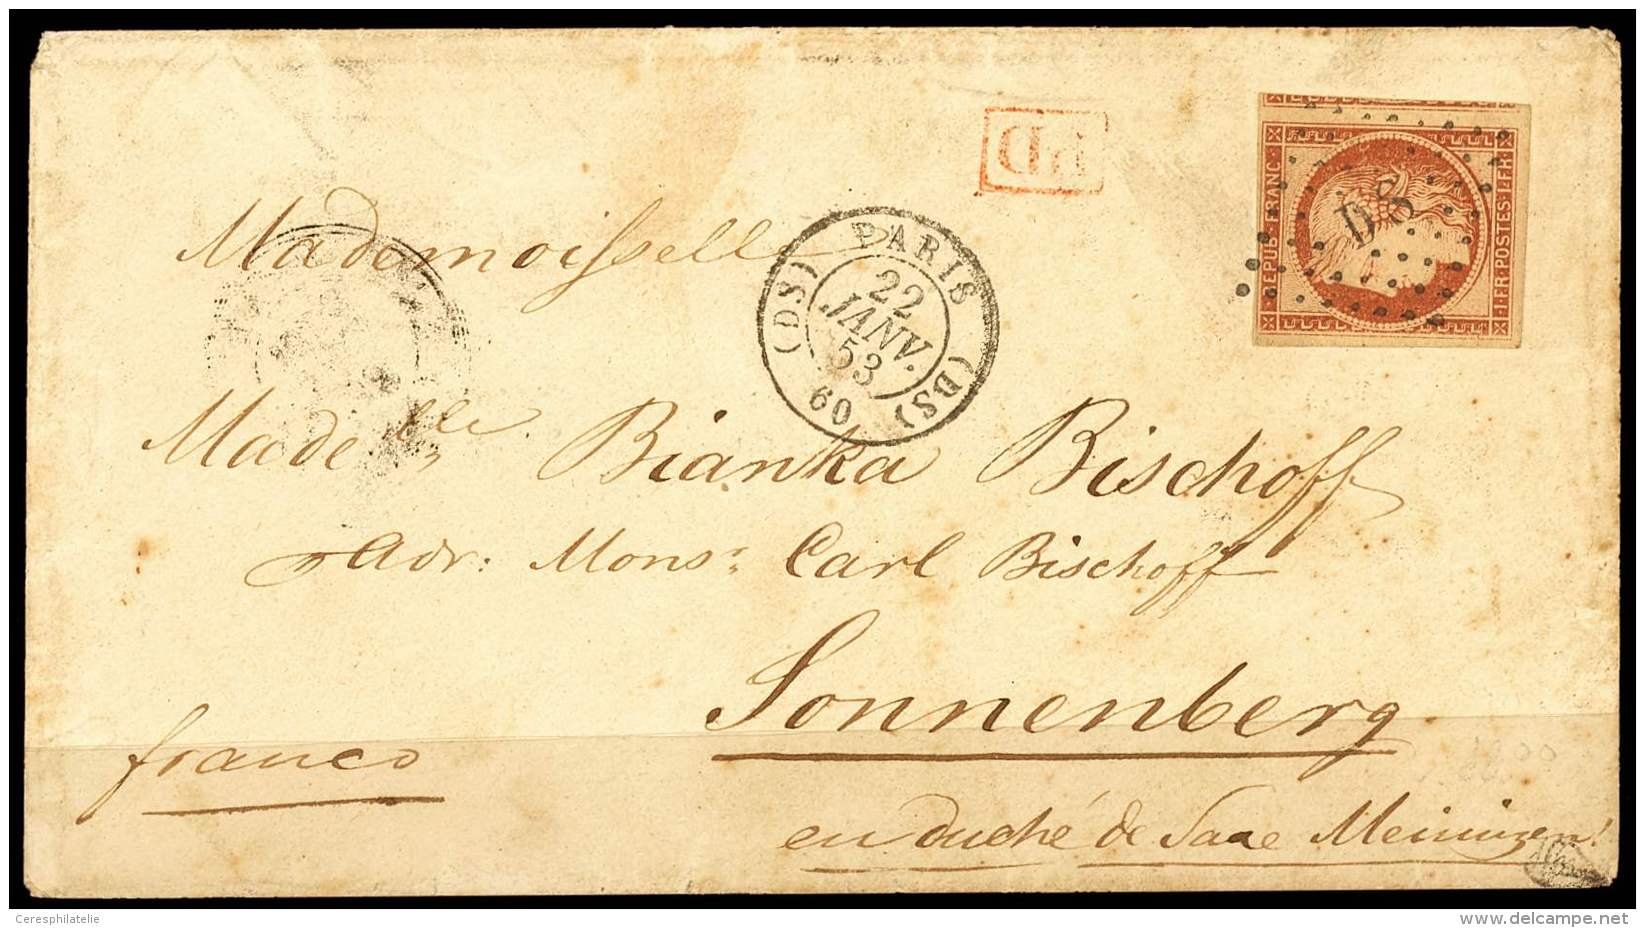 PD
REPUB FRANC
1 FR POSTES 1 FR
DS
Mademoisselle
PARIS (DS) 60 (DS)
22
JANV.
53
Made lle Bianka Bischoff
adr: Monsr Carl Bischoff
Sonnenberg
franco
en Duché de Saxe Meiningen!
Ceresphilatelie
www.delcampe.net